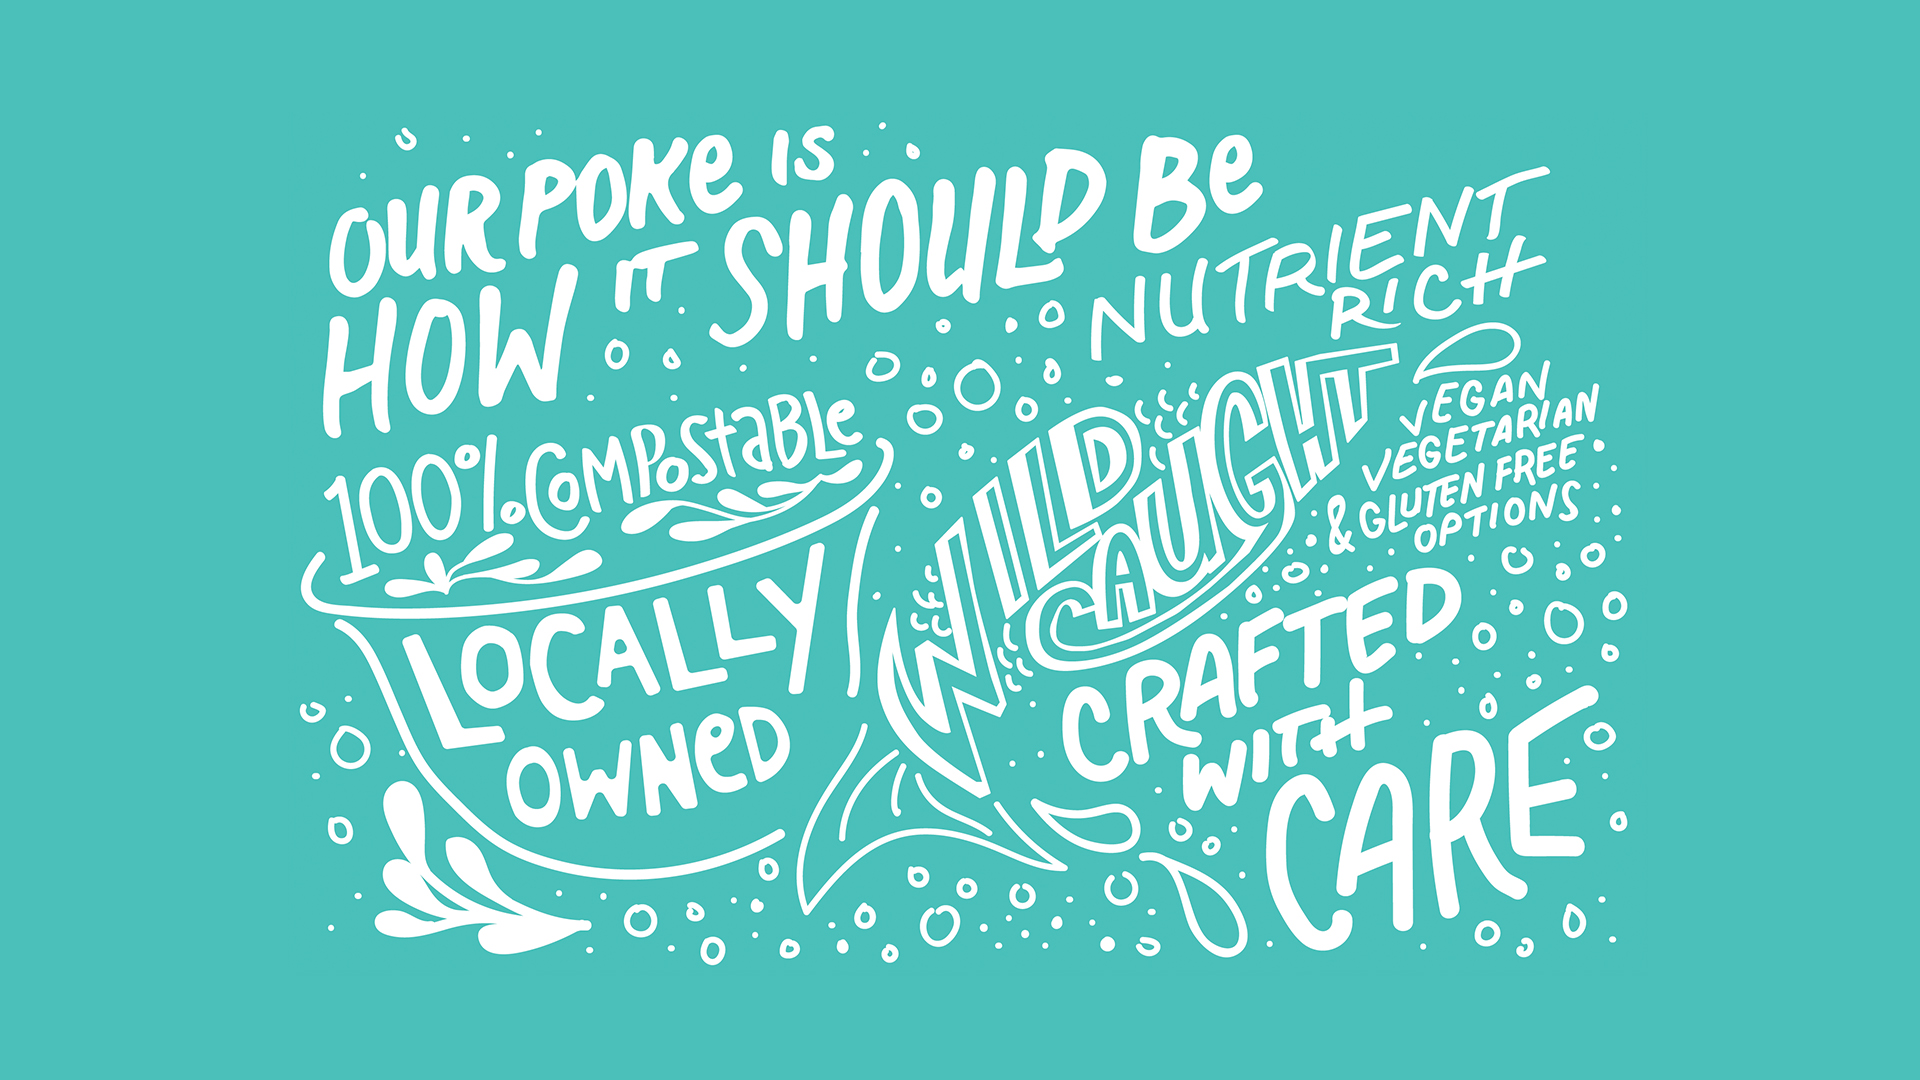 OUR POKE IS
HOW IT SHOULD BE
NUTRIENT
RICH
100% COMPOSTABLE
LOCALLY
OWNED
WILD
CAUGHT
VEGAN
VEGETARIAN
& GLUTEN FREE
OPTIONS
CRAFTED
WITH
CARE